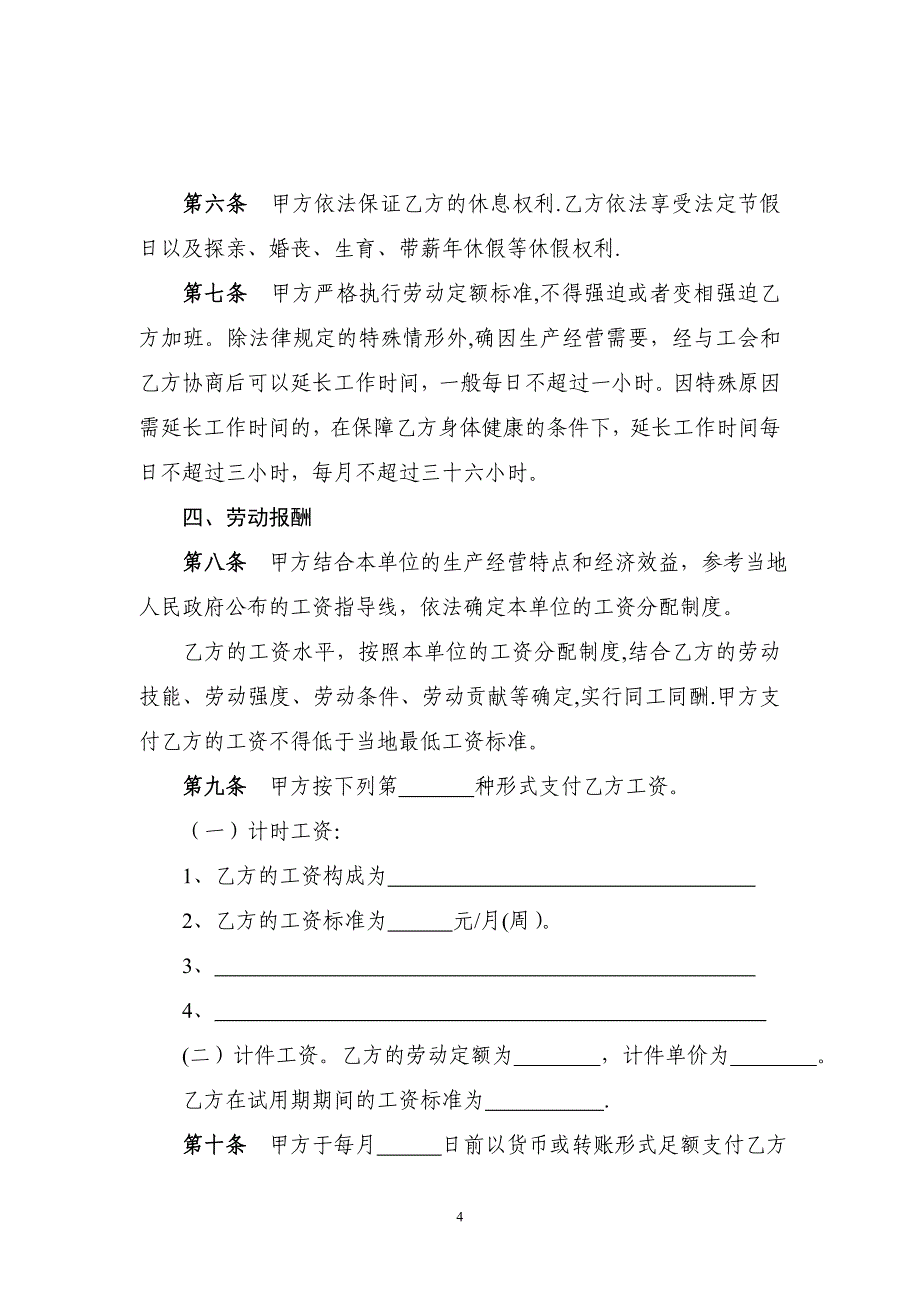 第六条　甲方依法保证乙方的休息权利.乙方依法享受法定节假
日以及探亲、婚丧、生育、带薪年休假等休假权利.
第七条　甲方严格执行劳动定额标准,不得强迫或者变相强迫乙
方加班。除法律规定的特殊情形外,确因生产经营需要，经与工会和
乙方协商后可以延长工作时间，一般每日不超过一小时。因特殊原因
需延长工作时间的，在保障乙方身体健康的条件下，延长工作时间每
日不超过三小时，每月不超过三十六小时。
四、劳动报酬
第八条　甲方结合本单位的生产经营特点和经济效益，参考当地
人民政府公布的工资指导线，依法确定本单位的工资分配制度。
乙方的工资水平，按照本单位的工资分配制度,结合乙方的劳动
技能、劳动强度、劳动条件、劳动贡献等确定,实行同工同酬.甲方支
付乙方的工资不得低于当地最低工资标准。
第九条　甲方按下列第_______种形式支付乙方工资。
（一）计时工资:
1、乙方的工资构成为__________________________________
2、乙方的工资标准为______元/月(周）。
3、__________________________________________________
4、___________________________________________________
(二）计件工资。乙方的劳动定额为________，计件单价为________。
乙方在试用期期间的工资标准为___________.
第十条　甲方于每月______日前以货币或转账形式足额支付乙方
4